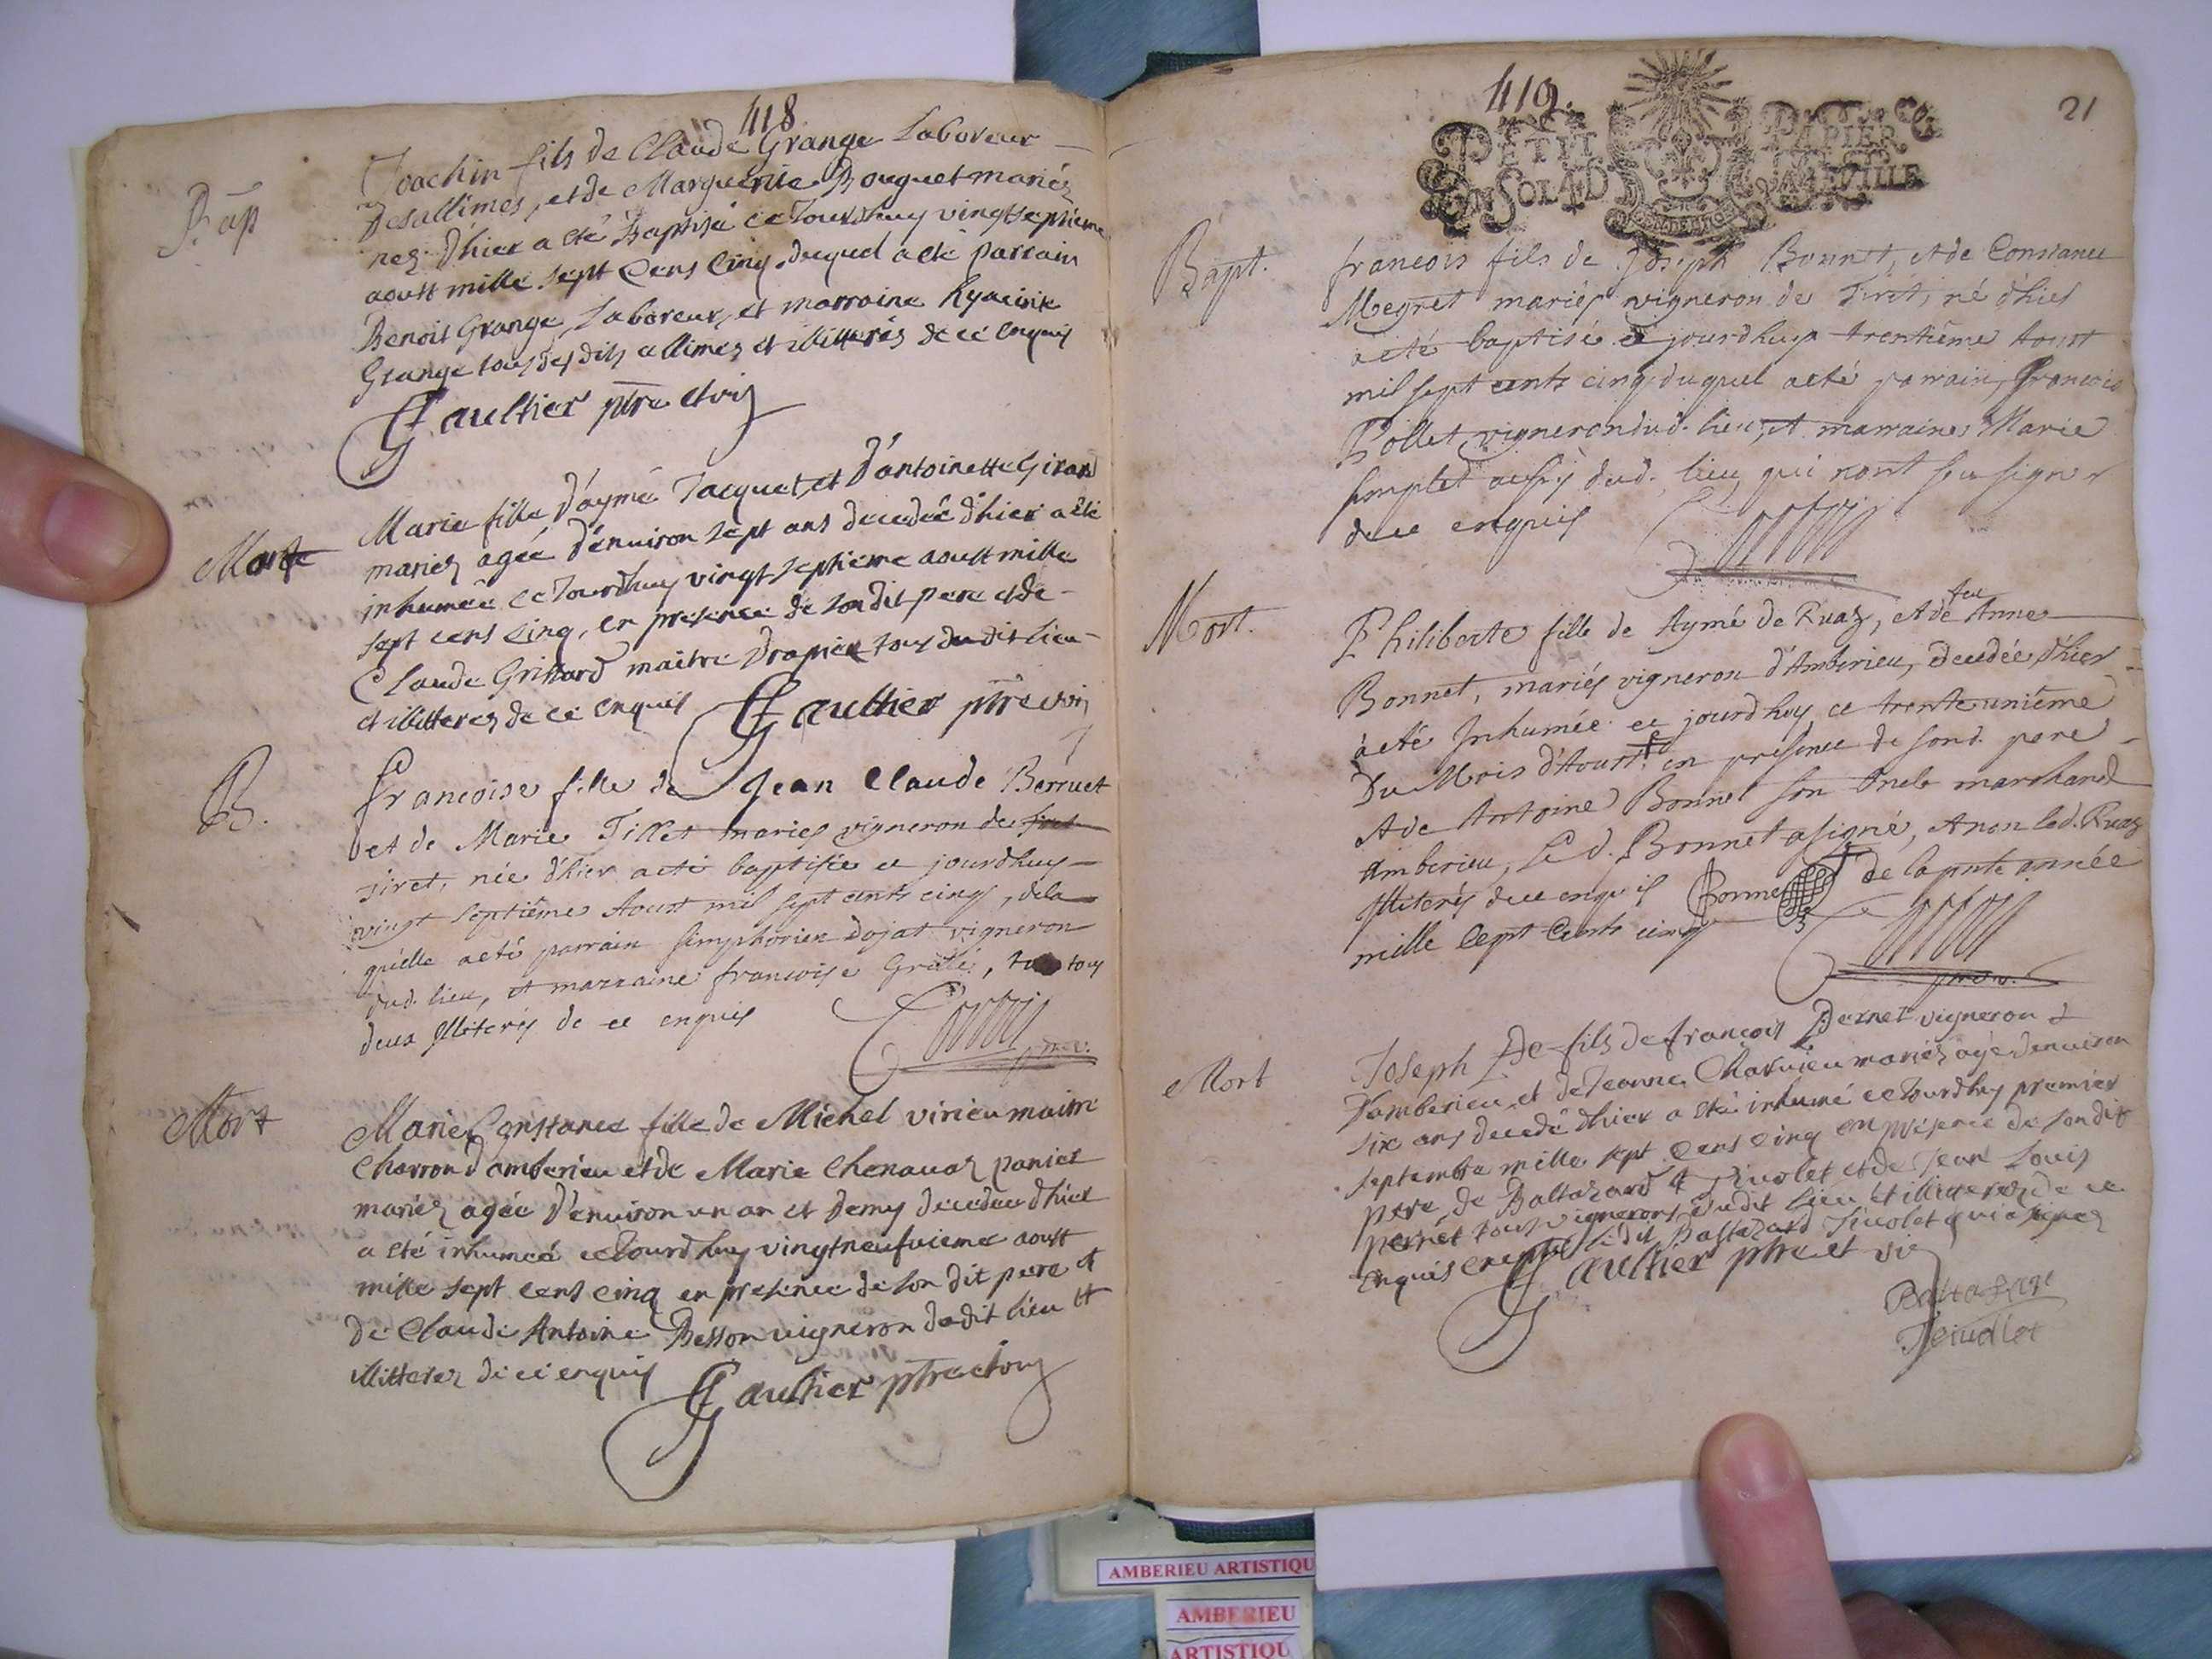 418
Bap
Joachin fils de Claude Grange Laboreur
Desallimes, et de Marguerite Bouquet mariés
nez d'hier a eté Baptisé ce Jourdhuy vingtseptieme
aoust mille sept Cens Cinq, duquel a eté parrain
Benoit Grange, Laboreur, et marraine hyacinte
Grange tous desdits allimes et illitterés de ce enquis
Gaultier ptre et vic
Mort
Marie fille D'aymé Jacquet, et D'antoinette Girard
mariez agée D'enuiron sept ans decedée d'hier a eté
inhumée ce Jourdhuy vingt septieme aoust mille
sept cens Cinq, en presence de son dit pere et de
Claude Grissard maitre Drapier tous du dit lieu
et illitterez de ce enquis Gaultier ptre vic
B.
francoise fille de Jean Claude Berruet
et de Marie Tillet mariés vigneron de
Tiret, née d'hier a eté baptisée ce jourdhuy
vingt septiéme Aoust mil sept cents cinq, dela
quelle a eté parrain simphorien Dojat vigneron
dud. lieu, et marraine francoise tous
deux illiterés de ce enquis
Mort
Marie Constance fille de Michel virieu maitre
Charron d'amberieu et de Marie Chenauaz panier
mariez agée D'enuiron un an et Demy decedée d'hier
a eté inhumée ce Jourdhuy vingtneufuieme aoust
mille sept cens cinq en presence de son dit pere et
de Claude Antoine Besson vigneron dudit lieu et
illitterez de ce enquis Gaultier ptre et vic
419.
21
PETIT PAPIER
EN SOL
Bapt.
francois fils de Joseph Bonnet, et de Constance
Megret mariés vigneron de Tiret, né d'hier
a eté baptisé ce jourdhuy trentiéme Aoust
mil sept cents cinq, duquel a eté parrain, francois
Pollet vigneron dud. lieu, et marraine Marie
simplet aussy dud. lieu, qui n'ont sceu signer
de ce enquis
Mort.
Philiberte fille de Aymé de Ruaz, et de feu Anne
Bonnet, mariés vigneron d'Amberieu, decedée d'hier
a eté Inhumée ce jourdhuy ce trenteuniéme
Du Mois d'Aoust en presence de sond. pere
et de Antoine Bonnet son oncle marchand
Amberieu, led. Bonnet a signé, et non led. Ruaz
illiterés de ce enquis Bonnet de la pnte année
mille sept Cents cinq
Mort
Joseph fils de francois Pernet vigneron
D'amberieu et de Jeanne Charuieu mariez agé denuiron
six ans decedé d'hier a eté inhumé ce Jourdhuy premier
septembre mille sept cens cinq en presence de son dit
pere, de Baltazard et de Jean Louis
pernet tous vignerons dudit lieu et illitterez de ce
enquis excepté ledit Baltazard qui a signé
Gaultier ptre et vic
Baltazar